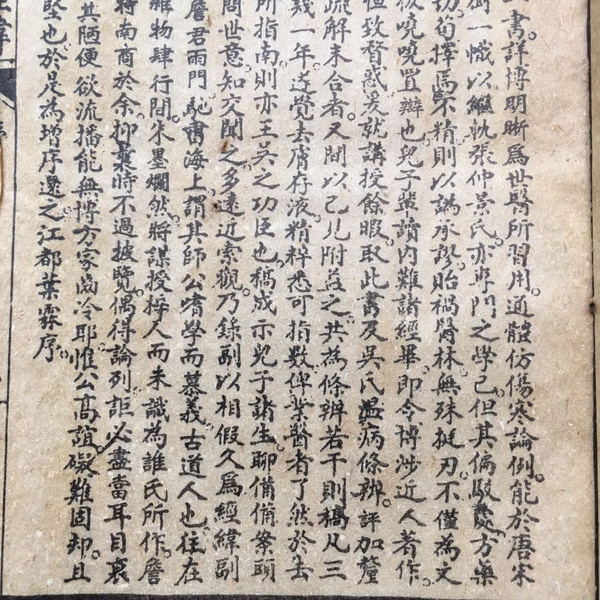 一書詳博明晰為世醫所習用通體仿傷寒論例能於唐宋
樹一幟以繼軌張仲景氏亦專門之學已但其偏駁處方藥
切苟擇焉不精則以譌承謬貽禍醫林無殊挺刃不僅為文
後嘵嘵置辦也兒子輩讀內難諸經畢即令博涉近人著作
但致瞀惑爰就講授餘暇取此書及吳氏溫病條辨評加釐
疏解未合者又間以己見附益之共為條辨若干則稿凡三
幾一年遂覺去膚存液精粹悉可指數俾業醫者了然於去
所指南則亦王吳之功臣也稿成示兒子諸生聊備備案頭
問世意知交聞之多遠近索觀乃錄副以相假久為經緯副
詹君雨門馳書海上謂其師公嗜學而慕義古道人也往在
雜物肆行間朱墨爛然將謀授梓人而未識為誰氏所作詹
特南商於余抑葉時不過披覽偶得論列詎必盡當耳目衷
其陋便欲流播能無博方家齒冷耶惟公高誼礙難固却且
堅也於是為增序還之江都葉霖序